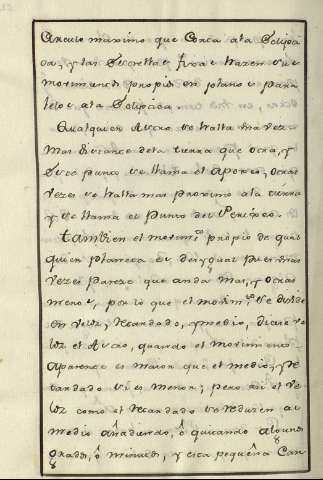 Circulo maximo que Corta a la Eclipti
ca, y las Estrellas fixas hazen sus
movimientos propios en plano paral
lelo a la Ecliptica.
Qualquier Astro se halla una vez
mas distante de la tierra que otra, y
este punto se llama el Apogeo, otras
vezes se halla mas proximo a la tierra
y se llama el Punto del Perigeo.
Tambien el movim.to propio de qual
quier planeta es desygual pues unas
vezes pareze que anda mas, y otras
menos, por lo que el movim.to se divide
en veloz, retardado, y medio, dizese ve
loz el Astro, quando el movimiento
aparente es maior que el medio, y re
tardado si es menor; pero asi el ve
loz como el retardado se reduzen al
medio añadiendo, ô quitando algunos
grados, ô minutos, y esta pequeña Can